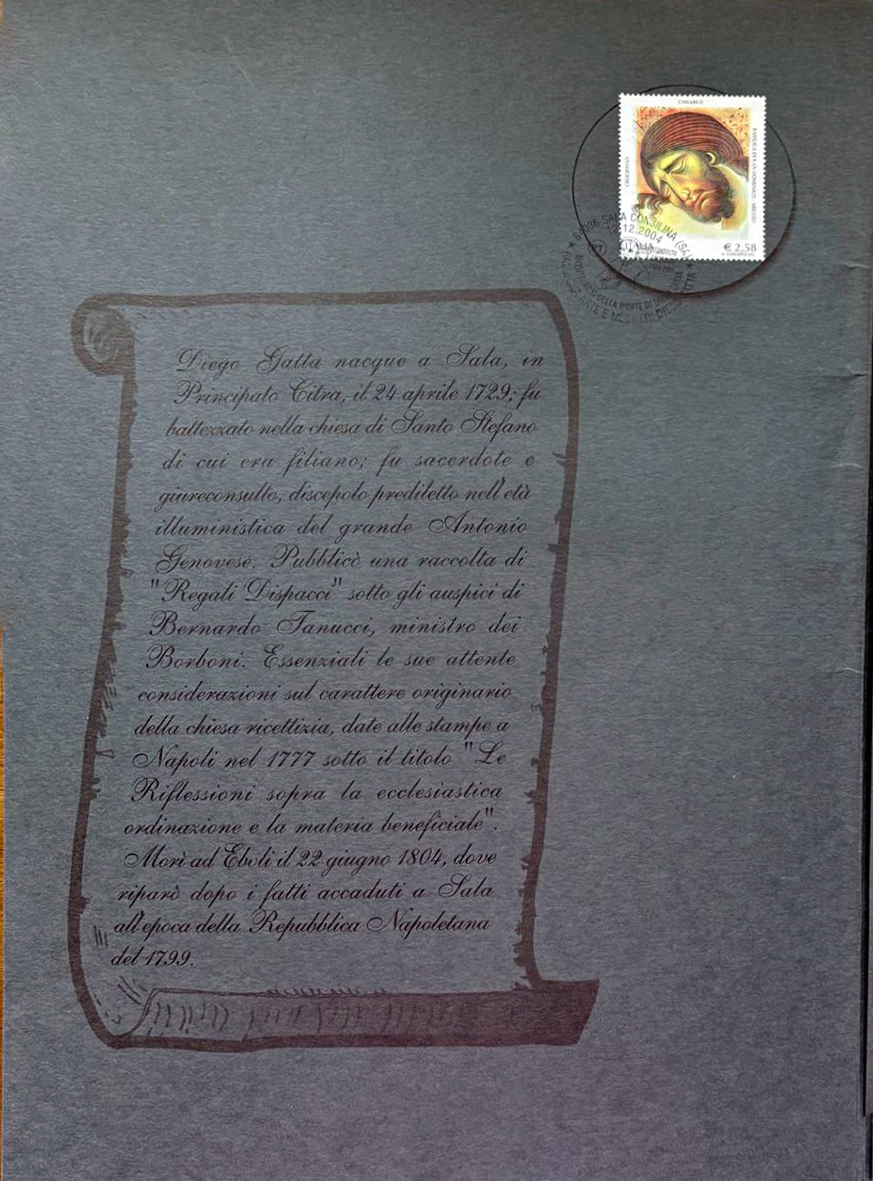 CIMABUE
CROCIFISSO
BASILICA DI SAN DOMENICO - AREZZO
ITALIA
€ 2,58
84036 SALA CONSILINA (SA)
12.12.2004
PT
DELLA MORTE DI
ARTE E
Diego Gatta nacque a Sala, in
Principato Citra, il 24 aprile 1729; fu
battezzato nella chiesa di Santo Stefano
di cui era filiano; fu sacerdote e
giureconsulto, discepolo prediletto nell'età
illuministica del grande Antonio
Genovese. Pubblicò una raccolta di
"Regali Dispacci" sotto gli auspici di
Bernardo Tanucci, ministro dei
Borboni. Essenziali le sue attente
considerazioni sul carattere originario
della chiesa ricettizia, date alle stampe a
Napoli nel 1777 sotto il titolo "Le
Riflessioni sopra la ecclesiastica
ordinazione e la materia beneficiale".
Morì ad Eboli il 22 giugno 1804, dove
riparò dopo i fatti accaduti a Sala
all'epoca della Repubblica Napoletana
del 1799.